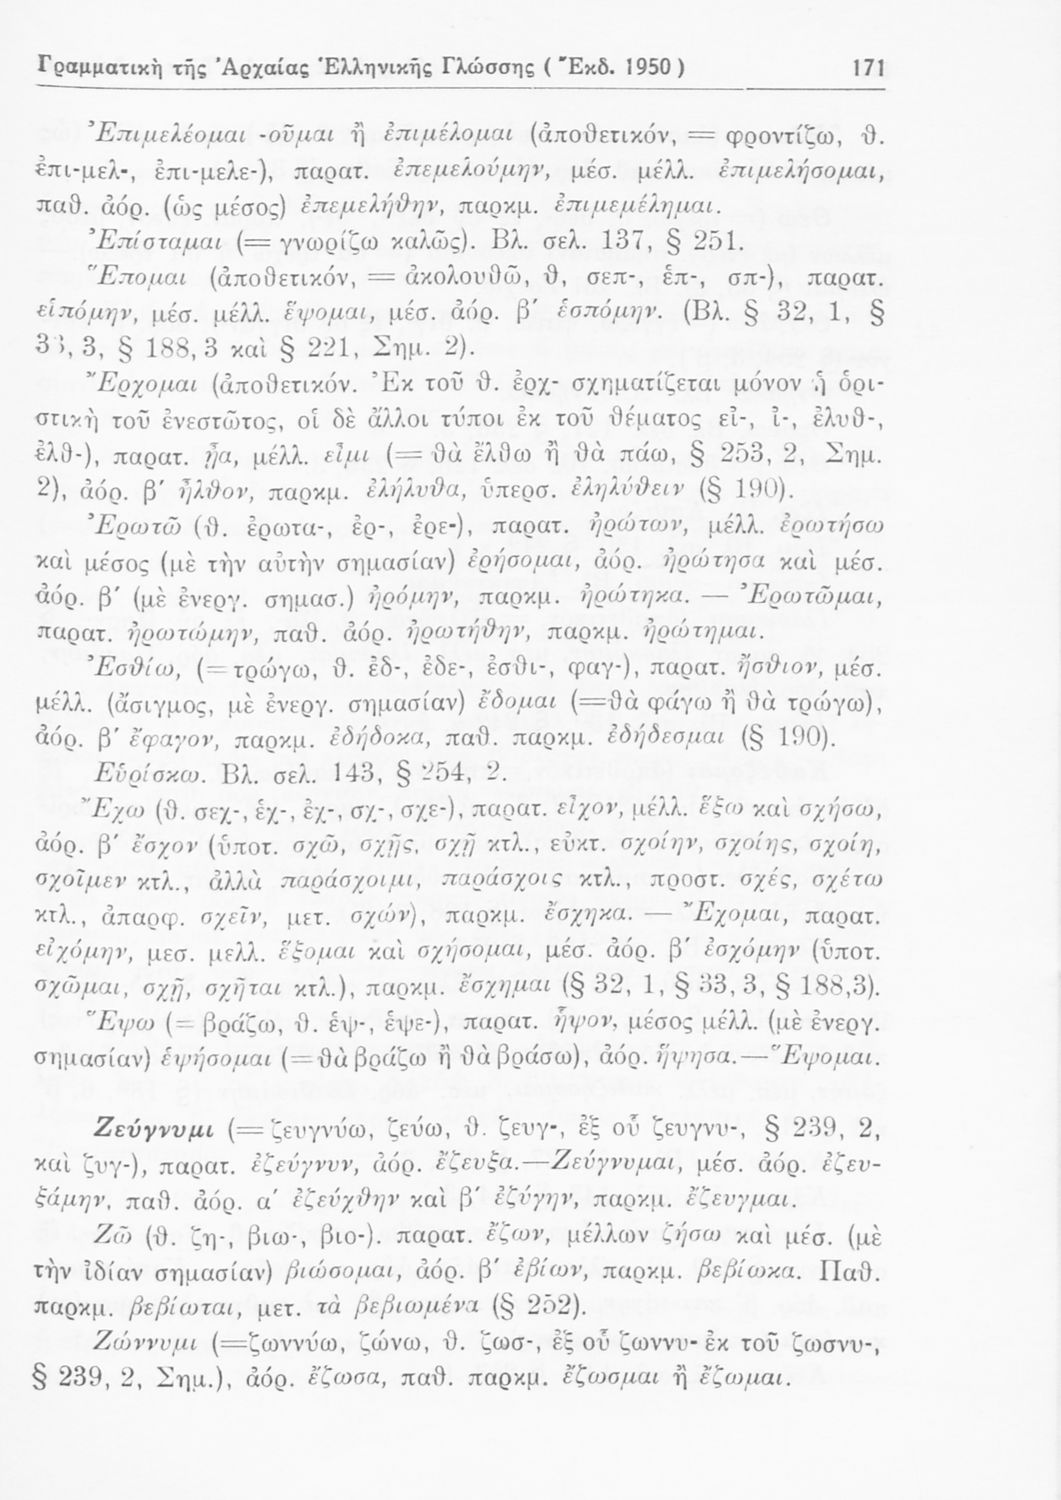 Γραμματικὴ τῆς Ἀρχαίας Ἑλληνικῆς Γλώσσης ( Ἔκδ. 1950 ) 171
Ἐπιμελέομαι -οῦμαι ἢ ἐπιμέλομαι (ἀποθετικόν, = φροντίζω, θ.
ἐπι-μελ-, ἐπι-μελε-), παρατ. ἐπεμελούμην, μέσ. μέλλ. ἐπιμελήσομαι,
παθ. ἀόρ. (ὡς μέσος) ἐπεμελήθην, παρκμ. ἐπιμεμέλημαι.
Ἐπίσταμαι (= γνωρίζω καλῶς). Βλ. σελ. 137, § 251.
Ἕπομαι (ἀποθετικόν, = ἀκολουθῶ, θ, σεπ-, ἑπ-, σπ-), παρατ.
εἱπόμην, μέσ. μέλλ. ἕψομαι, μέσ. ἀόρ. β΄ ἑσπόμην. (Βλ. § 32, 1, §
33, 3, § 188, 3 καὶ § 221, Σημ. 2).
Ἔρχομαι (ἀποθετικόν. Ἐκ τοῦ θ. ἐρχ- σχηματίζεται μόνον ἡ ὁρι-
στικὴ τοῦ ἐνεστῶτος, οἱ δὲ ἄλλοι τύποι ἐκ τοῦ θέματος εἰ-, ἰ-, ἐλυθ-,
ἐλθ-), παρατ. ᾖα, μέλλ. εἶμι (= θὰ ἔλθω ἢ θὰ πάω, § 253, 2, Σημ.
2), ἀόρ. β΄ ἦλθον, παρκμ. ἐλήλυθα, ὑπερσ. ἐληλύθειν (§ 190).
Ἐρωτῶ (θ. ἐρωτα-, ἐρ-, ἐρε-), παρατ. ἠρώτων, μέλλ. ἐρωτήσω
καὶ μέσος (μὲ τὴν αὐτὴν σημασίαν) ἐρήσομαι, ἀόρ. ἠρώτησα καὶ μέσ.
ἀόρ. β΄ (μὲ ἐνεργ. σημασ.) ἠρόμην, παρκμ. ἠρώτηκα. — Ἐρωτῶμαι,
παρατ. ἠρωτώμην, παθ. ἀόρ. ἠρωτήθην, παρκμ. ἠρώτημαι.
Ἐσθίω, (= τρώγω, θ. ἐδ-, ἐδε-, ἐσθι-, φαγ-), παρατ. ἤσθιον, μέσ.
μέλλ. (ἄσιγμος, μὲ ἐνεργ. σημασίαν) ἔδομαι (=θὰ φάγω ἢ θὰ τρώγω),
ἀόρ. β΄ ἔφαγον, παρκμ. ἐδήδοκα, παθ. παρκμ. ἐδήδεσμαι (§ 190).
Εὑρίσκω. Βλ. σελ. 143, § 254, 2.
Ἔχω (θ. σεχ-, ἑχ-, ἐχ-, σχ-, σχε-), παρατ. εἶχον, μέλλ. ἕξω καὶ σχήσω,
ἀόρ. β΄ ἔσχον (ὑποτ. σχῶ, σχῇς, σχῇ κτλ., εὐκτ. σχοίην, σχοίης, σχοίη,
σχοῖμεν κτλ., ἀλλὰ παράσχοιμι, παράσχοις κτλ., προστ. σχές, σχέτω
κτλ., ἀπαρφ. σχεῖν, μετ. σχών), παρκμ. ἔσχηκα. — Ἔχομαι, παρατ.
εἰχόμην, μεσ. μελλ. ἕξομαι καὶ σχήσομαι, μέσ. ἀόρ. β΄ ἐσχόμην (ὑποτ.
σχῶμαι, σχῇ, σχῆται κτλ.), παρκμ. ἔσχημαι (§ 32, 1, § 33, 3, § 188,3).
Ἕψω (= βράζω, θ. ἑψ-, ἑψε-), παρατ. ἧψον, μέσος μέλλ. (μὲ ἐνεργ.
σημασίαν) ἑψήσομαι (= θὰ βράζω ἢ θὰ βράσω), ἀόρ. ἥψησα.—Ἕψομαι.
Ζεύγνυμι (= ζευγνύω, ζεύω, θ. ζευγ-, ἐξ οὗ ζευγνυ-, § 239, 2,
καὶ ζυγ-), παρατ. ἐζεύγνυν, ἀόρ. ἔζευξα.—Ζεύγνυμαι, μέσ. ἀόρ. ἐζευ-
ξάμην, παθ. ἀόρ. α΄ ἐζεύχθην καὶ β΄ ἐζύγην, παρκμ. ἔζευγμαι.
Ζῶ (θ. ζη-, βιω-, βιο-). παρατ. ἔζων, μέλλων ζήσω καὶ μέσ. (μὲ
τὴν ἰδίαν σημασίαν) βιώσομαι, ἀόρ. β΄ ἐβίων, παρκμ. βεβίωκα. Παθ.
παρκμ. βεβίωται, μετ. τὰ βεβιωμένα (§ 252).
Ζώννυμι (=ζωννύω, ζώνω, θ. ζωσ-, ἐξ οὗ ζωννυ- ἐκ τοῦ ζωσνυ-,
§ 239, 2, Σημ.), ἀόρ. ἔζωσα, παθ. παρκμ. ἔζωσμαι ἢ ἔζωμαι.